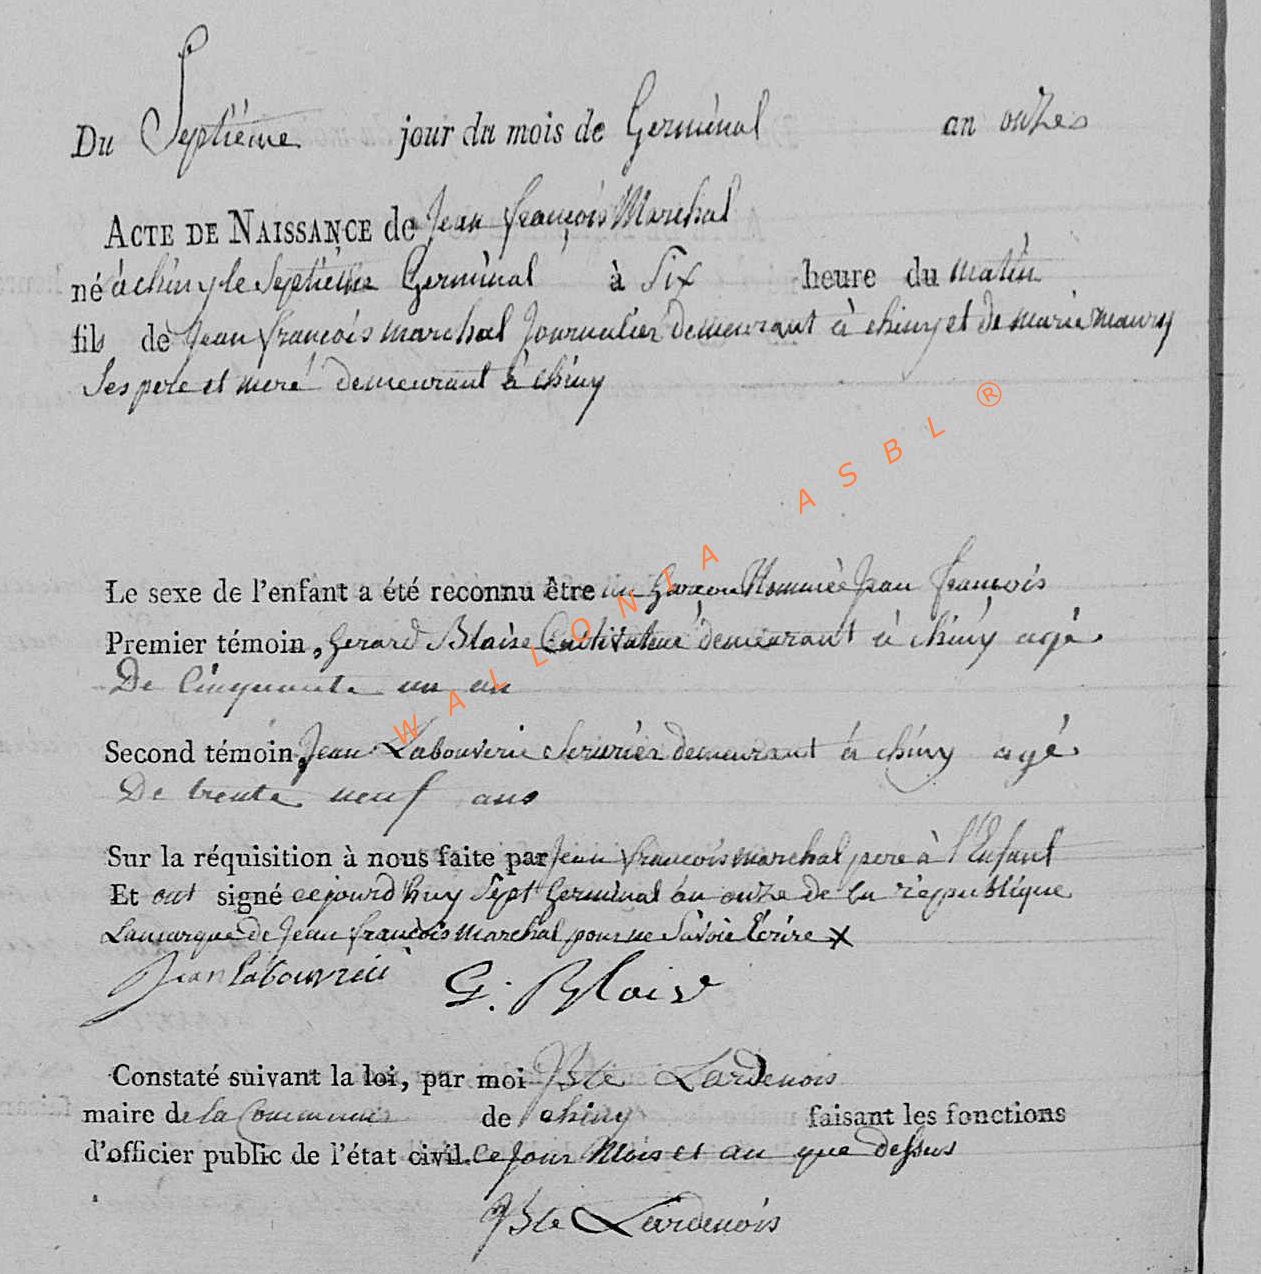 Du Septiéme jour du mois de Germinal an onzes
ACTE DE NAISSANCE de Jean françois Marchal
né à chiny le Septiéme Germinal à Six heure du matin
fils de Jean françois marchal Journalier demeurant à chiny et de marie maury
Ses pere et meré demeurant à chiny
Le sexe de l'enfant a été reconnu être un Garcon Nommée Jean françois
Premier témoin, Gerard Blaise Cultivateur demeurant à chiny agé
De Cinquante un an
Second témoin, Jean Labouverie Serurier demeurant à chiny agé
De trente neuf ans
Sur la réquisition à nous faite par Jean françois marchal pere à l'Enfant
Et ont signé cejourd'huy Sept Germinal an onze de la république
La marque de Jean françois Marchal pour ne Savoir Ecrire X
Jean Labouverie G. Blaise
Constaté suivant la loi, par moi JBte Lardenois
maire de la Commune de chiny faisant les fonctions
d'officier public de l'état civil. Ce Jour Mois et an que dessus
JBte Lardenois
WALLONIA ASBL ®